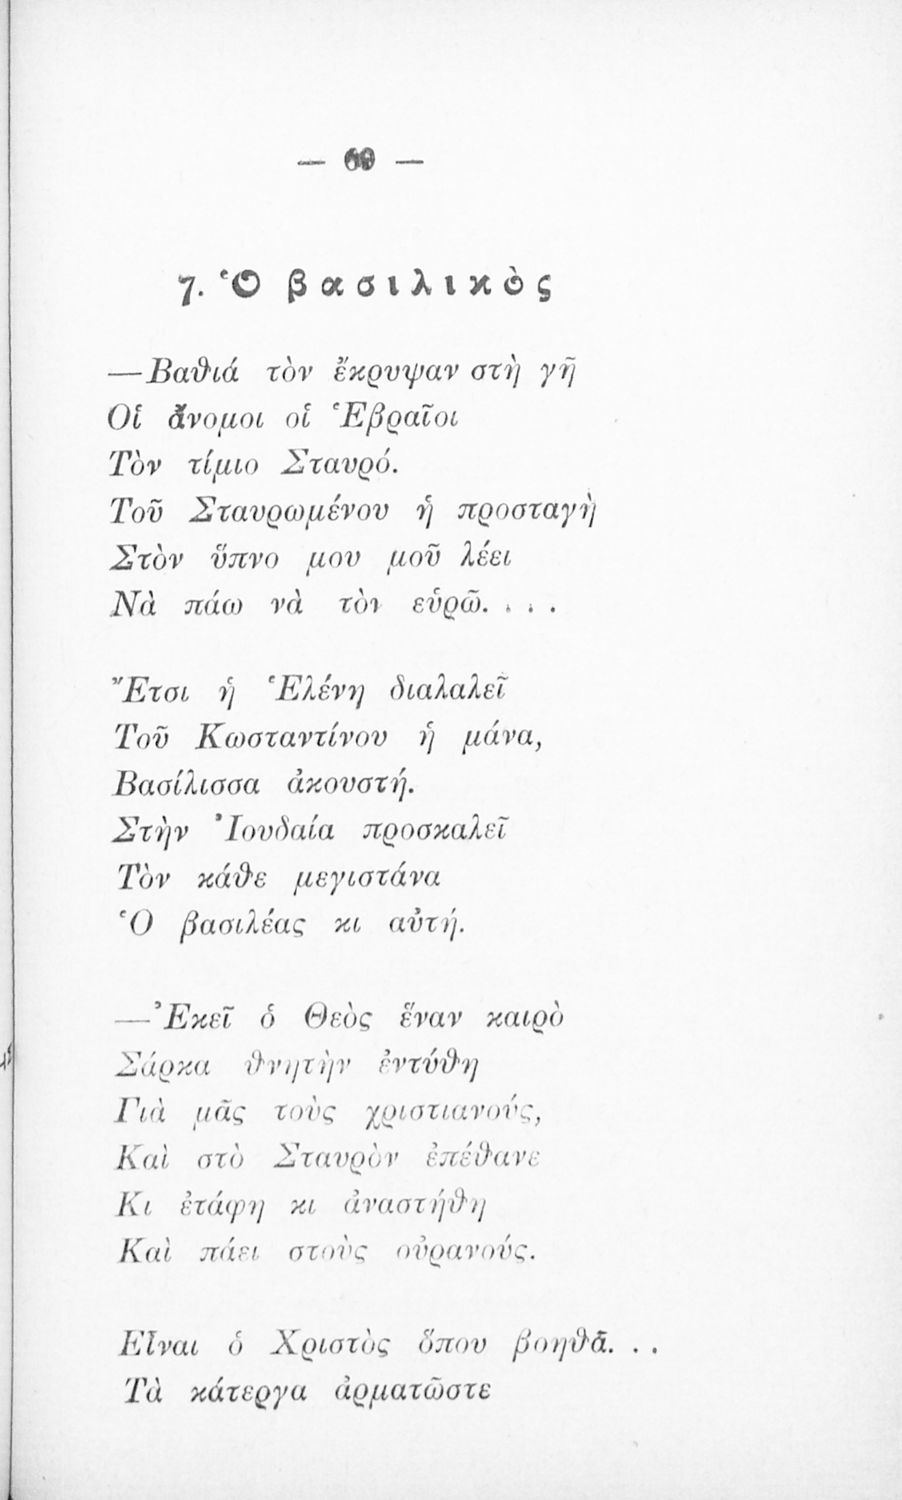 — 69 —
7. Ὁ βασιλικὸς
—Βαθιά τὸν ἔκρυψαν στὴ γῆ
Οἱ ἄνομοι οἱ Ἑβραῖοι
Τὸν τίμιο Σταυρό.
Τοῦ Σταυρωμένου ἡ προσταγὴ
Στὸν ὕπνο μου μοῦ λέει
Νὰ πάω νὰ τὸν εὑρῶ. . . .
Ἔτσι ἡ Ἑλένη διαλαλεῖ
Τοῦ Κωσταντίνου ἡ μάνα,
Βασίλισσα ἀκουστή.
Στὴν Ἰουδαία προσκαλεῖ
Τὸν κάθε μεγιστάνα
Ὁ βασιλέας κι αὐτή.
—Ἐκεῖ ὁ Θεὸς ἕναν καιρὸ
Σάρκα θνητὴν ἐντύθη
Γιὰ μᾶς τοὺς χριστιανούς,
Καὶ στὸ Σταυρὸν ἐπέθανε
Κι ἐτάφη κι ἀναστήθη
Καὶ πάει στοὺς οὐρανούς.
Εἶναι ὁ Χριστὸς ὅπου βοηθᾶ. . .
Τὰ κάτεργα ἁρματῶστε